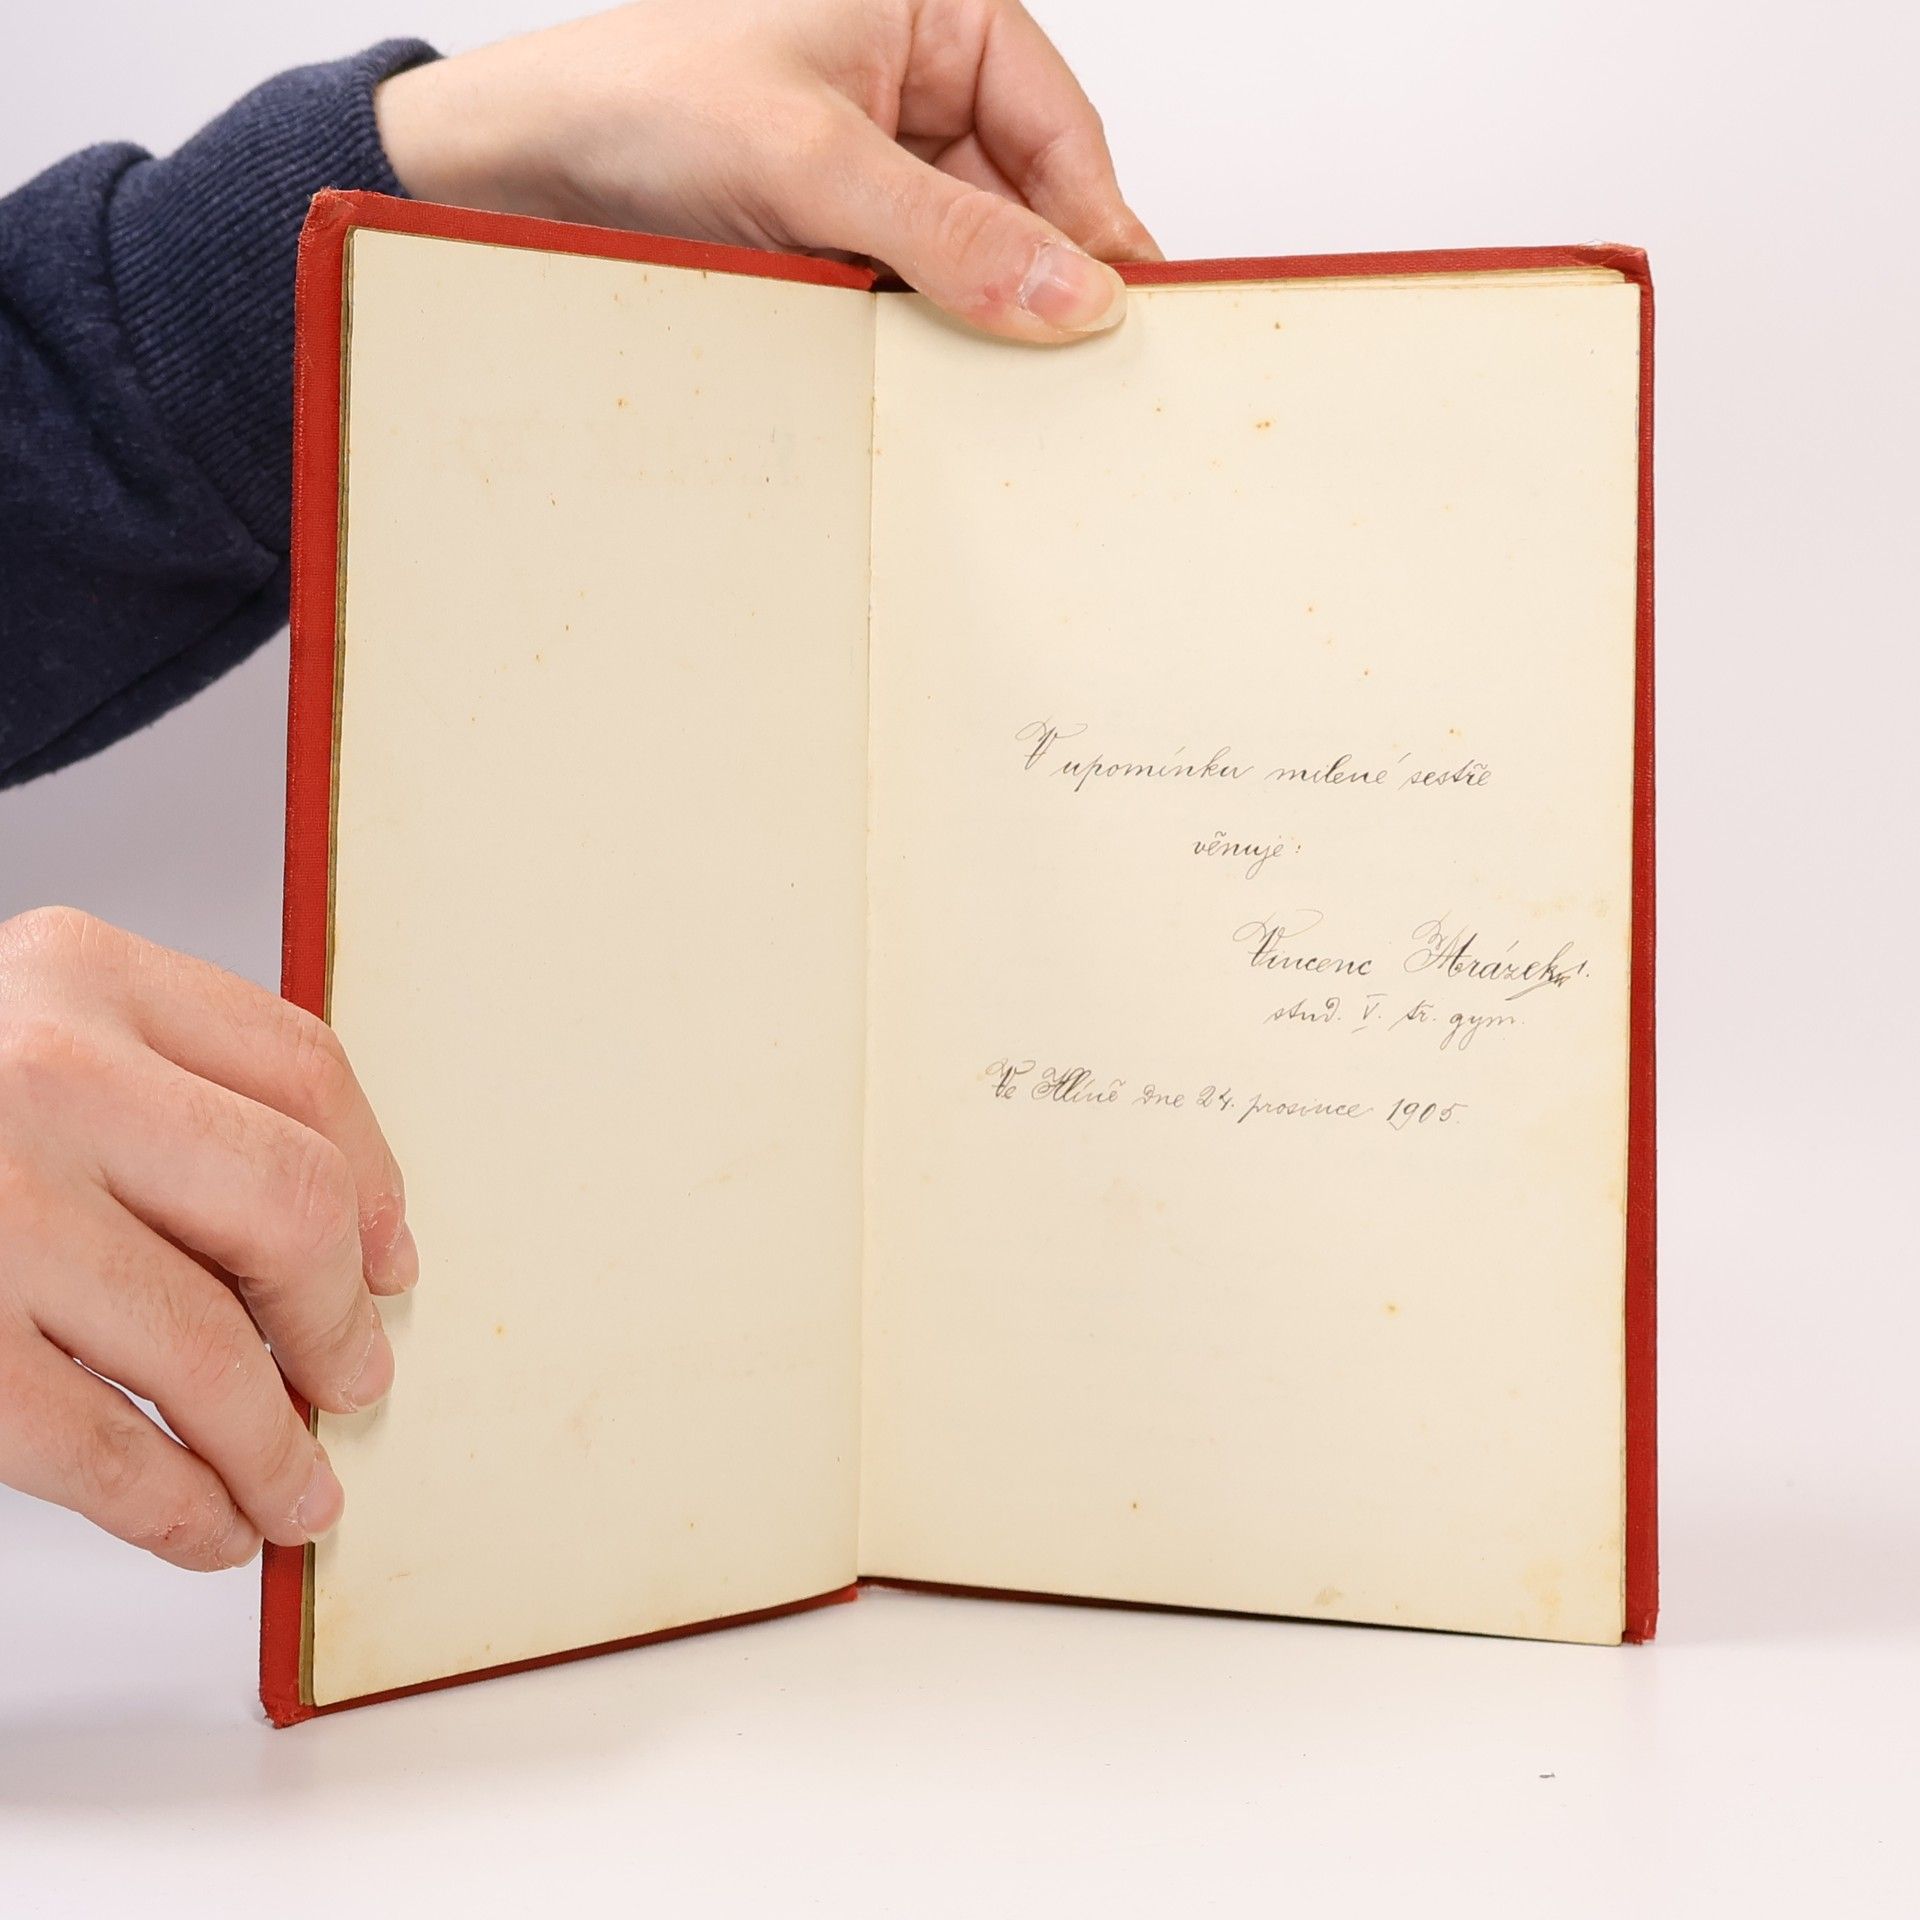 V upomínku milené sestře
věnuje:
Vincenc Mrázek
stud. V. tř. gym.
Ve Hlíně dne 24. prosince 1905.